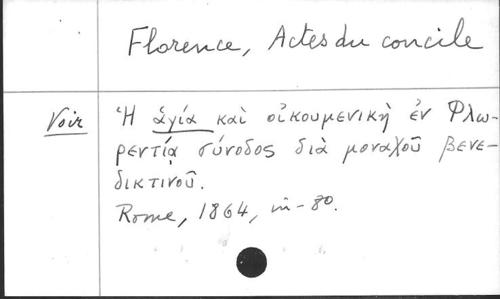 Florence, Actes du concile
Voir Ἡ ἁγία καὶ οἰκουμενικὴ ἐν Φλω-
ρεντίᾳ σύνοδος διὰ μοναχοῦ βενε-
δικτινοῦ.
Rome, 1864, in-8º.